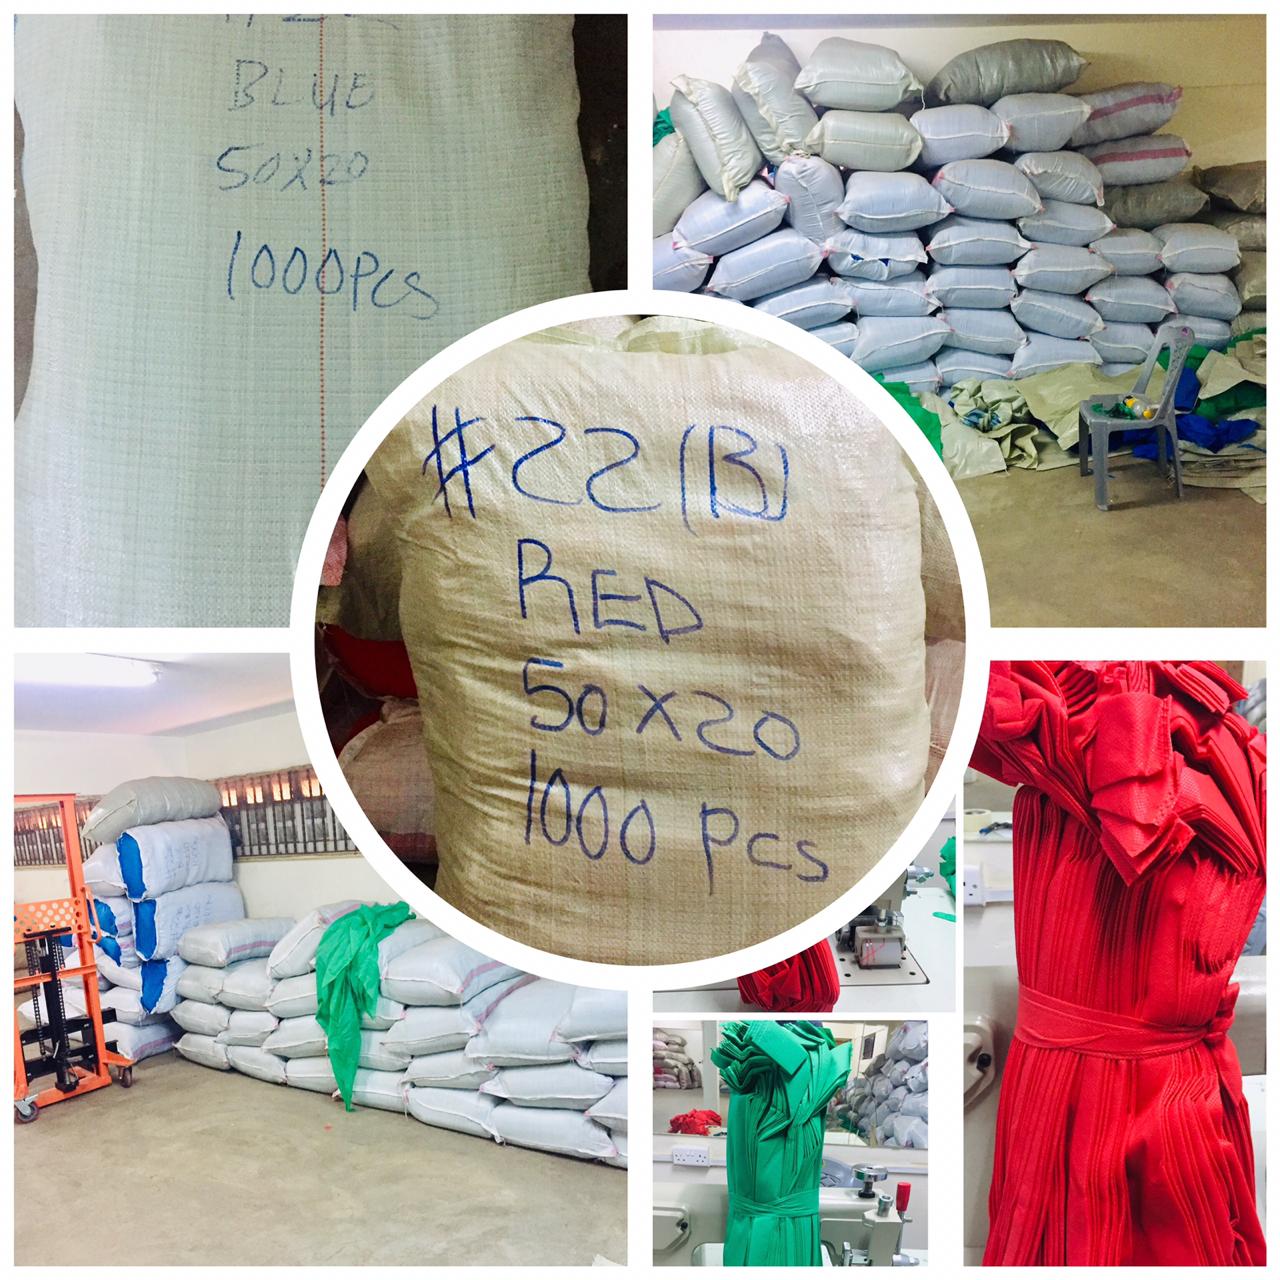 BLUE
50X20
1000PCS
#22(B)
RED
50X20
1000 PCS